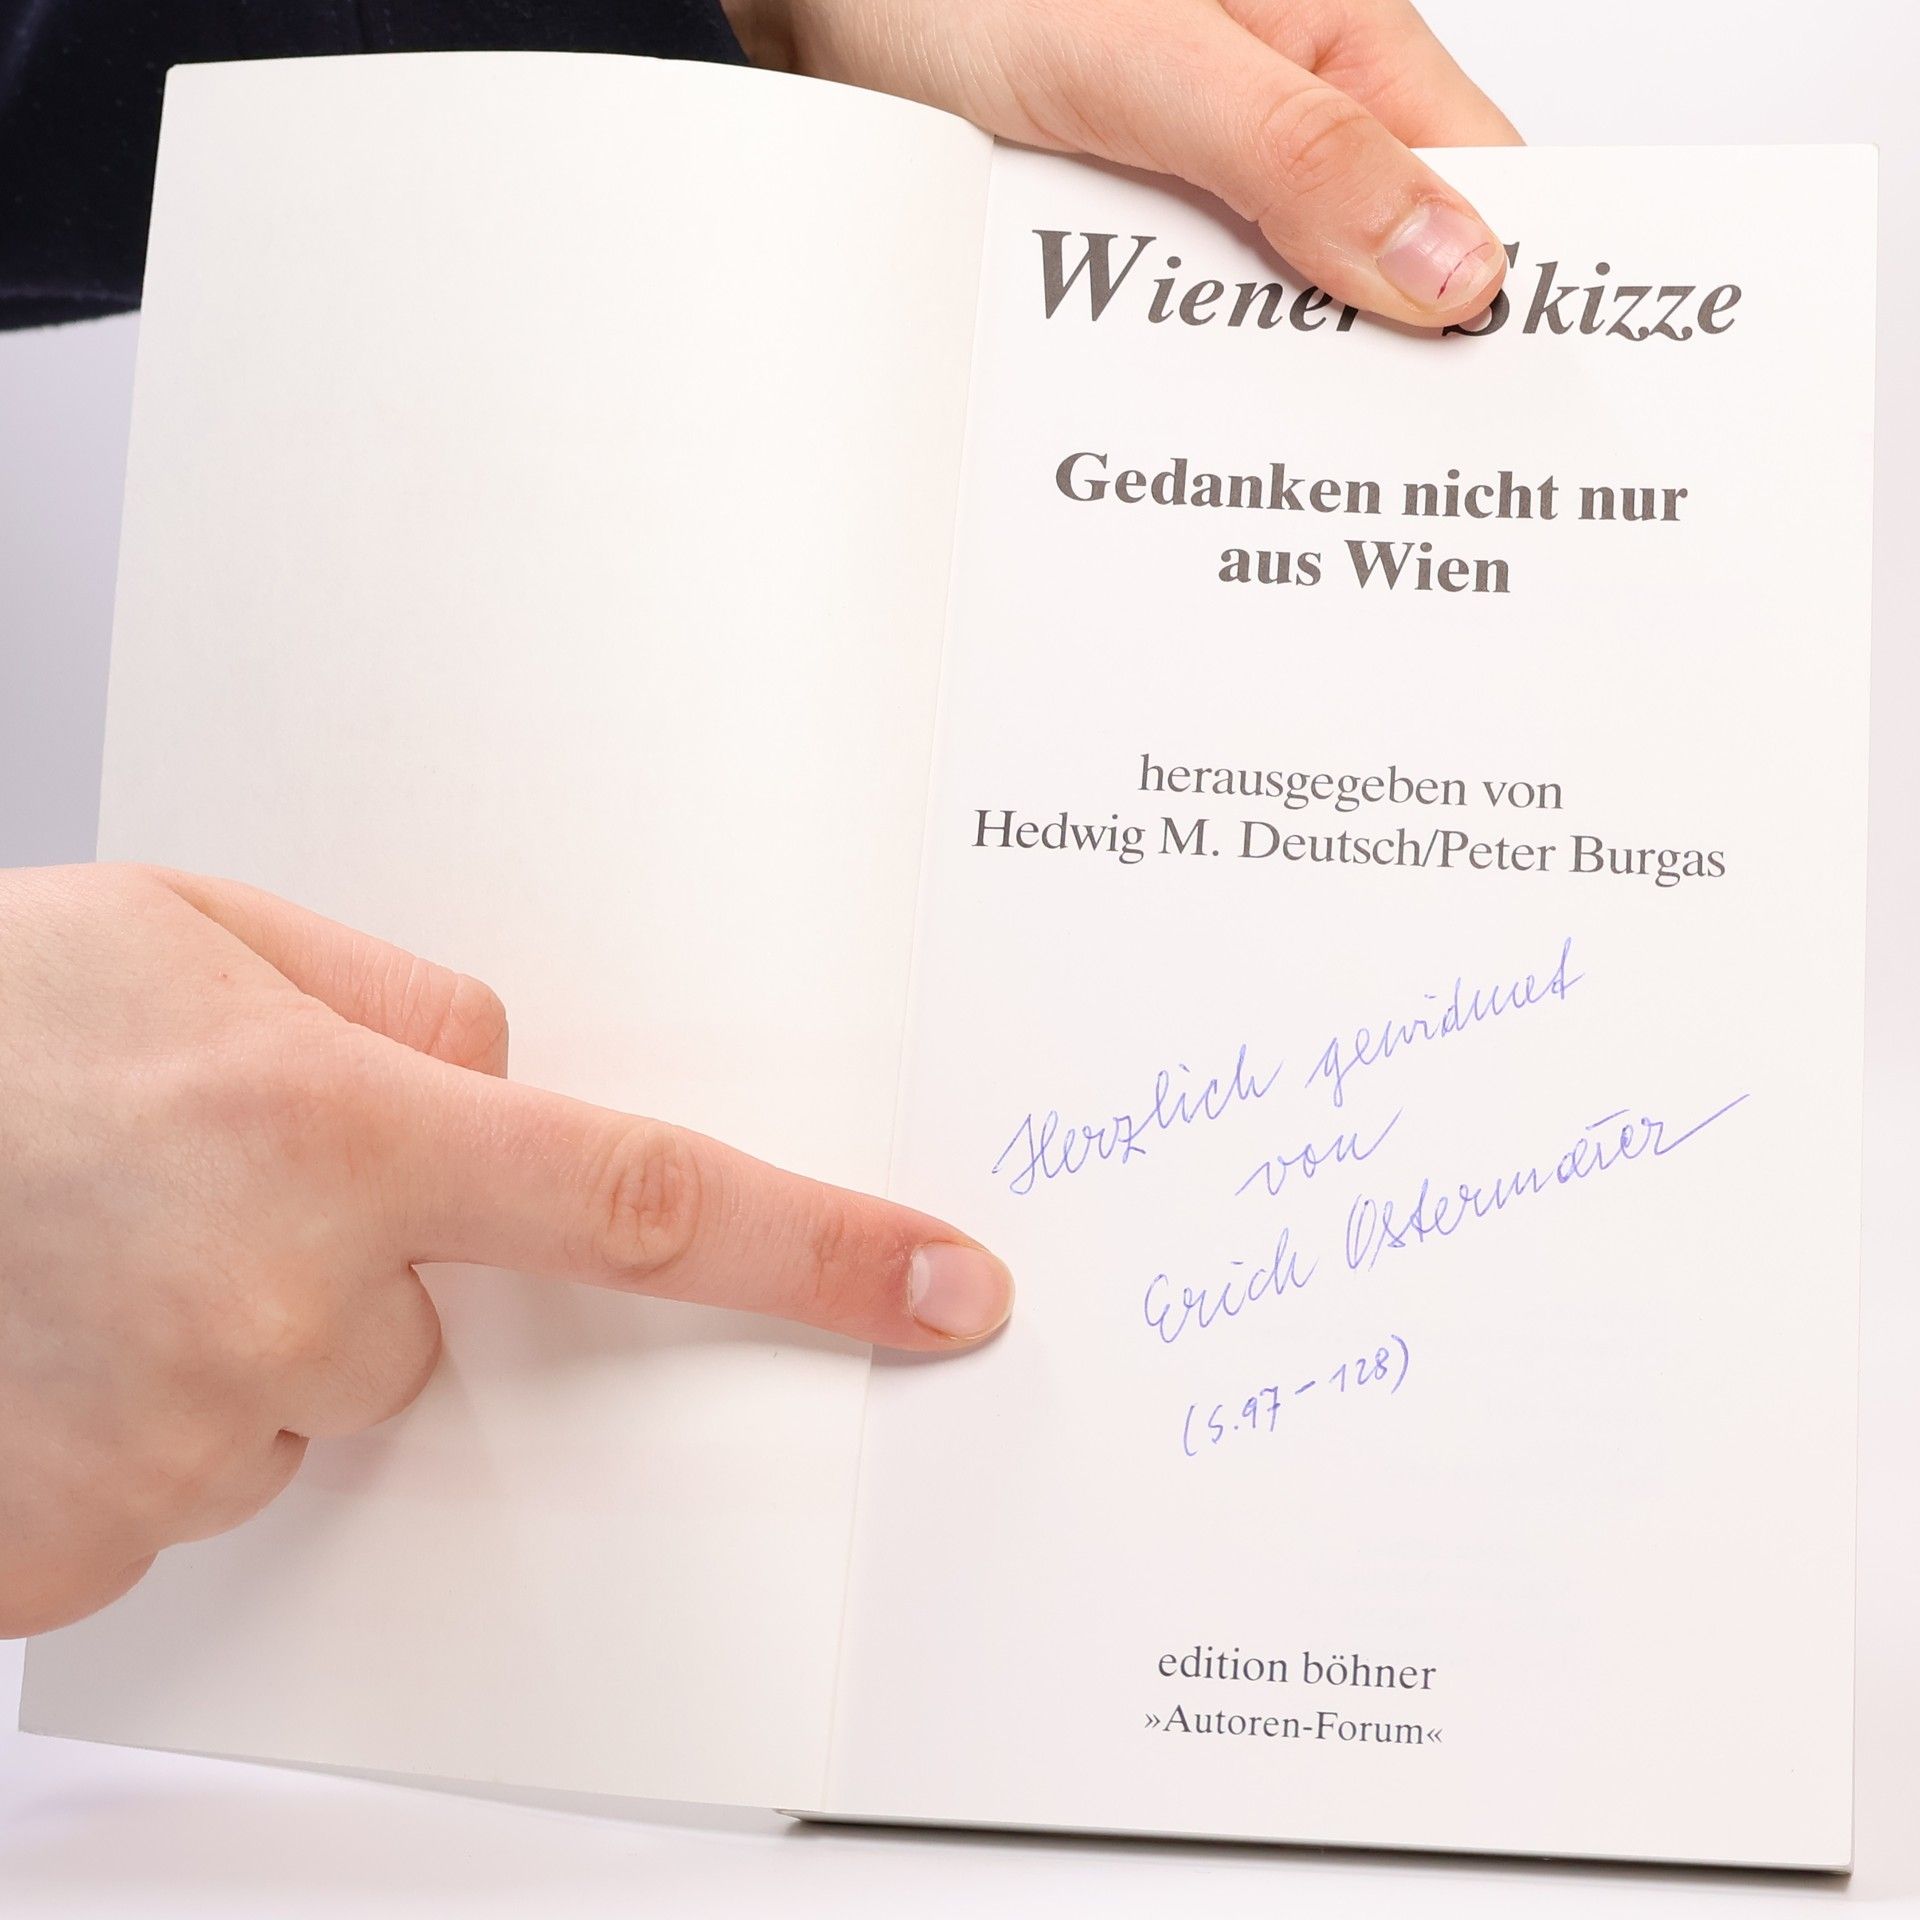 Wiener Skizze
Gedanken nicht nur
aus Wien
herausgegeben von
Hedwig M. Deutsch/Peter Burgas
Herzlich gewidmet
von
Erich Ostermaier
(S. 97 - 128)
edition böhner
»Autoren-Forum«